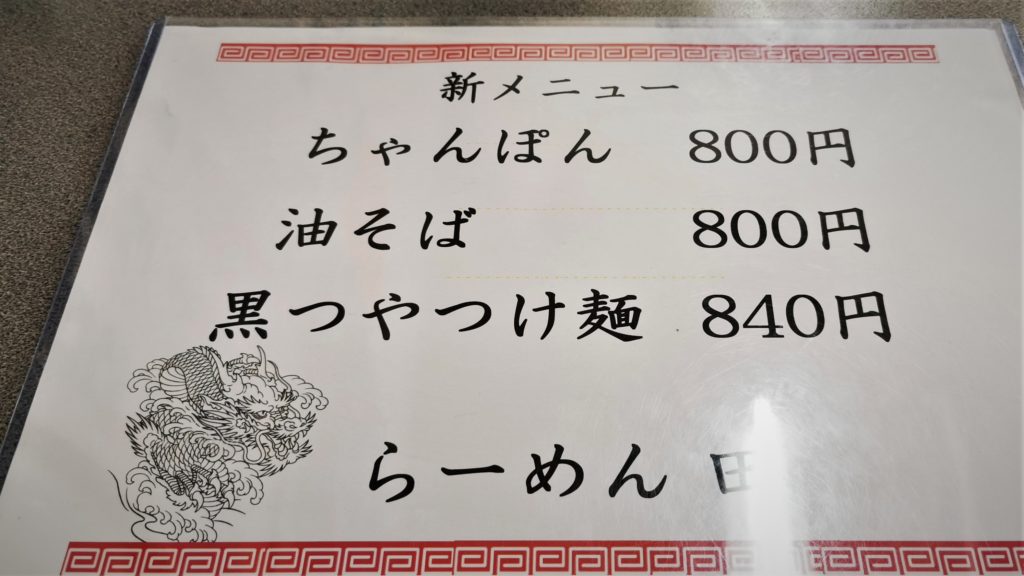 新メニュー
ちゃんぽん 800円
油そば 800円
黒つやつけ麺 840円
らーめん